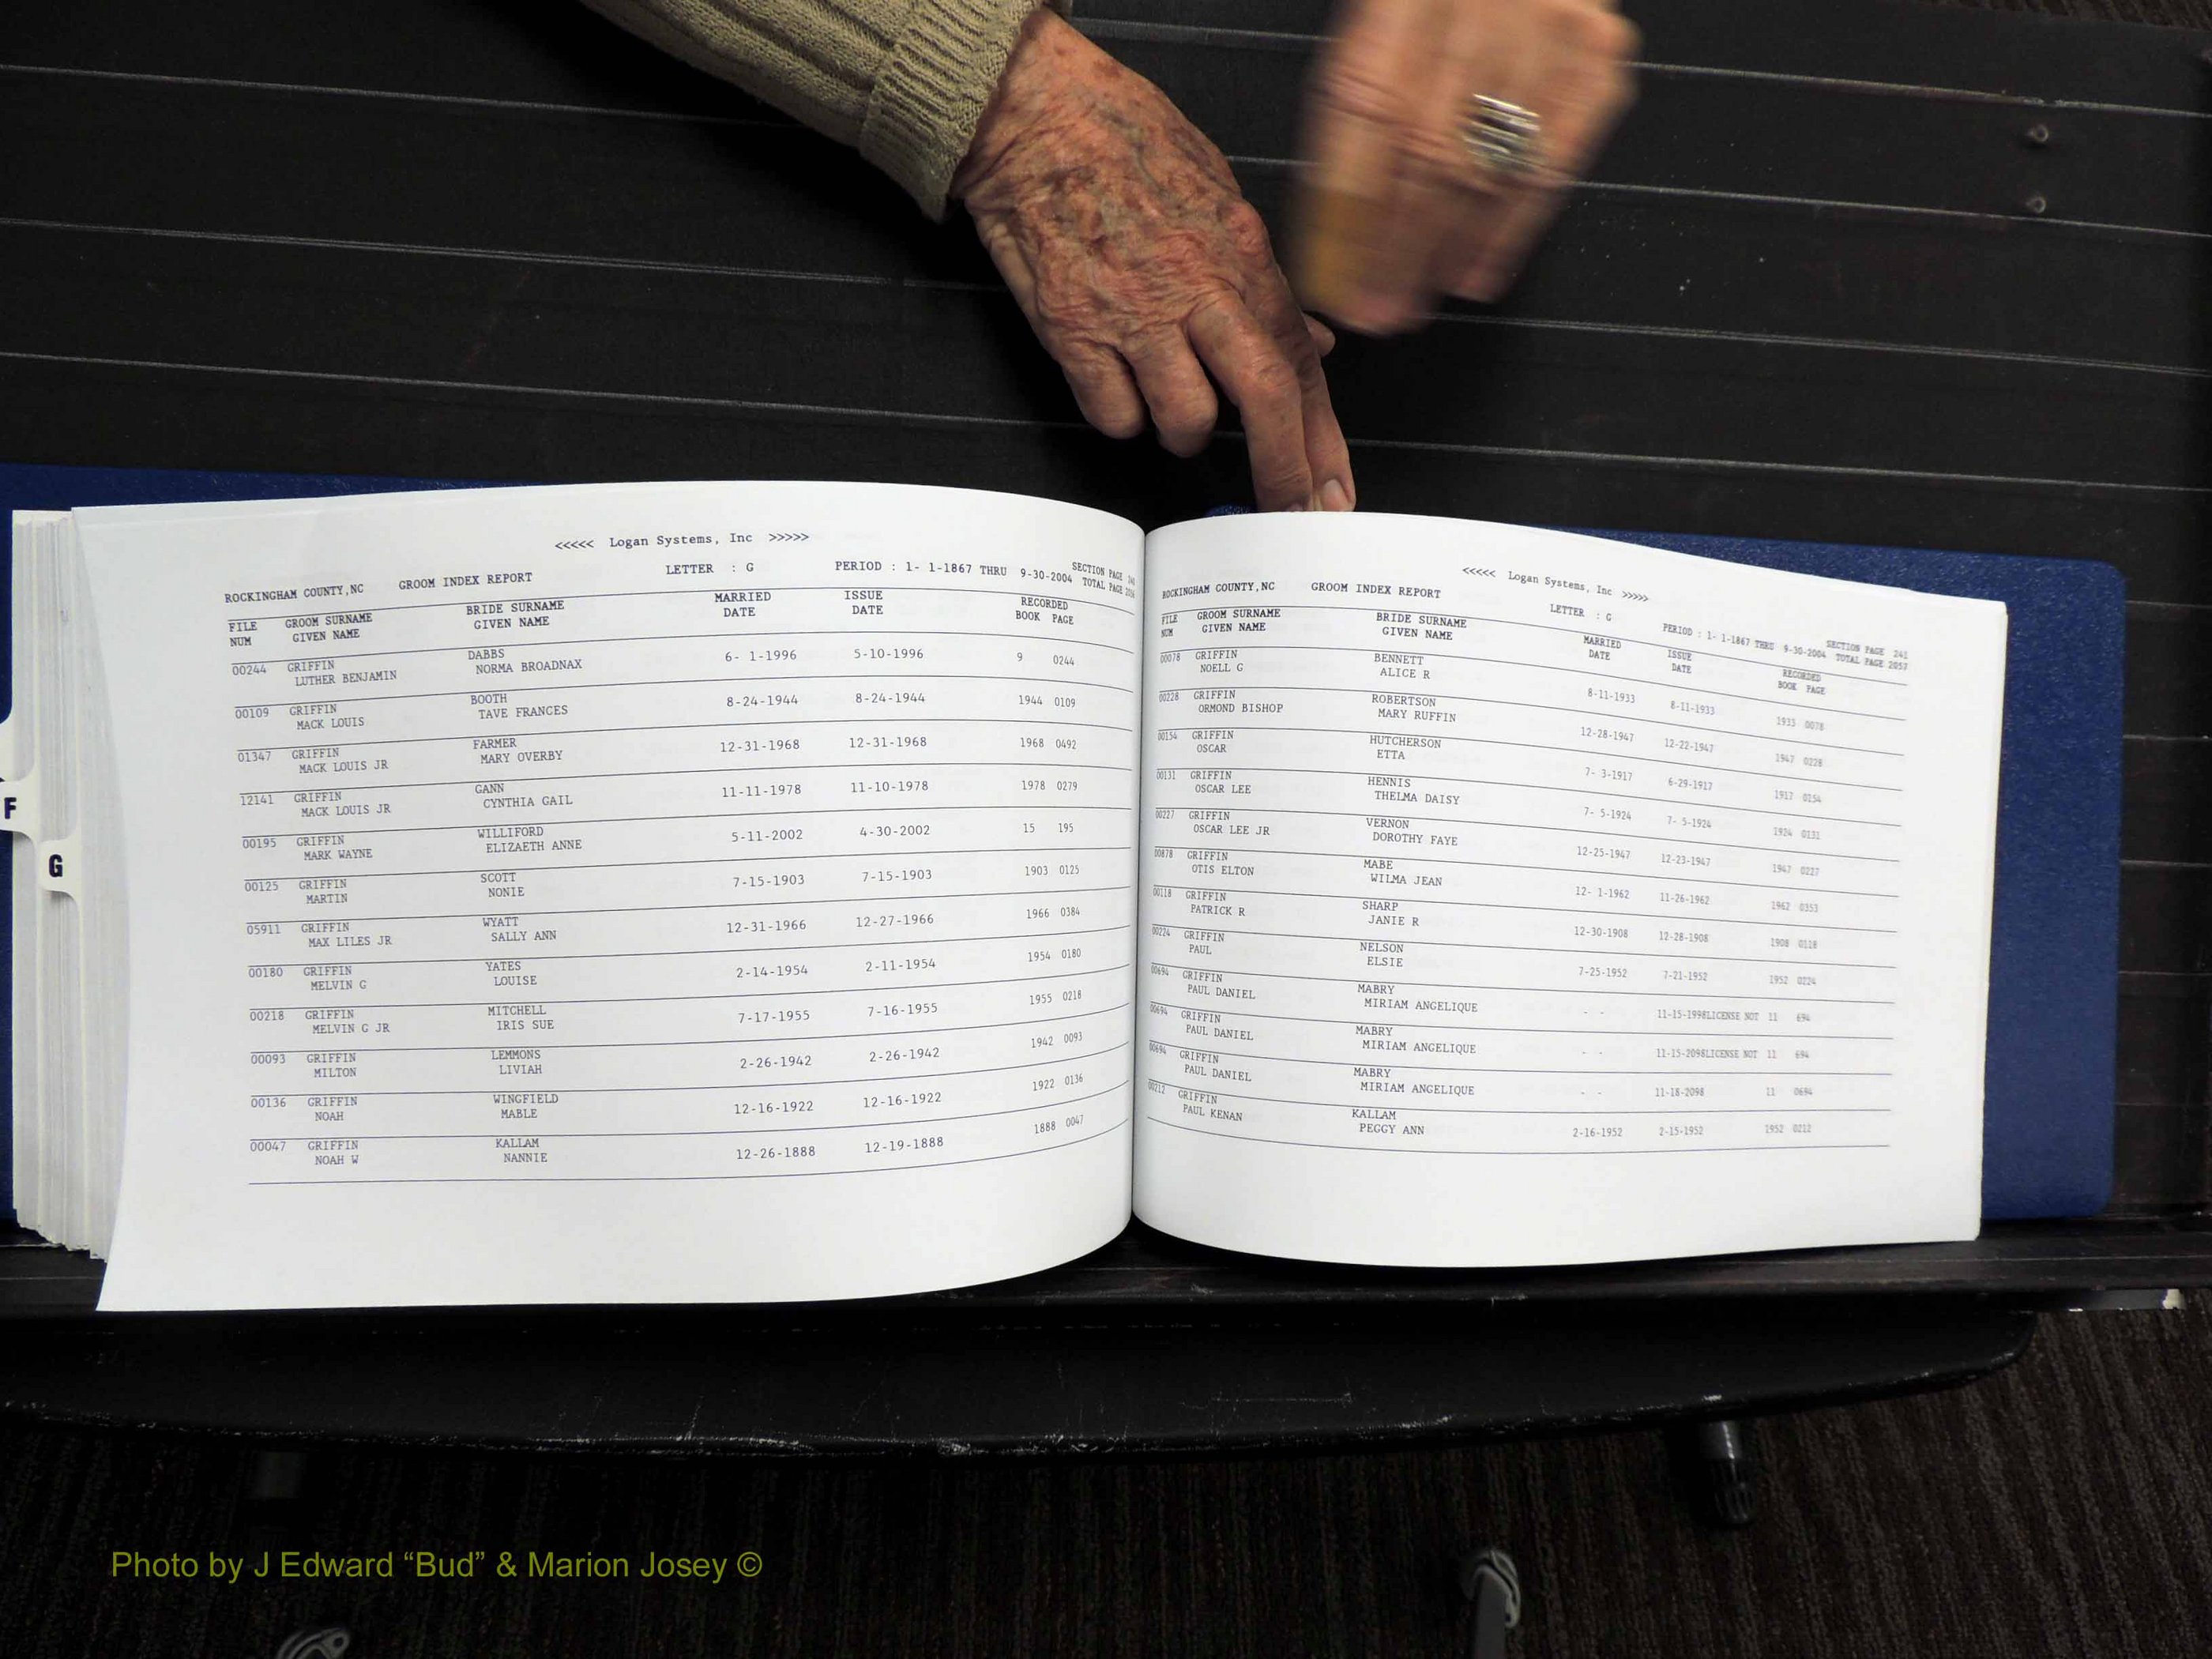 <<<<< Logan Systems, Inc >>>>>
ROCKINGHAM COUNTY,NC GROOM INDEX REPORT LETTER : G PERIOD : 1- 1-1867 THRU 9-30-2004 SECTION PAGE
TOTAL PAGE
FILE GROOM SURNAME BRIDE SURNAME MARRIED ISSUE RECORDED
NUM GIVEN NAME GIVEN NAME DATE DATE BOOK PAGE
00244 GRIFFIN DABBS 6- 1-1996 5-10-1996 9 0244
LUTHER BENJAMIN NORMA BROADNAX
00109 GRIFFIN BOOTH 8-24-1944 8-24-1944 1944 0109
MACK LOUIS TAVE FRANCES
01347 GRIFFIN FARMER 12-31-1968 12-31-1968 1968 0492
MACK LOUIS JR MARY OVERBY
12141 GRIFFIN GANN 11-11-1978 11-10-1978 1978 0279
MACK LOUIS JR CYNTHIA GAIL
00195 GRIFFIN WILLIFORD 5-11-2002 4-30-2002 15 195
MARK WAYNE ELIZAETH ANNE
00125 GRIFFIN SCOTT 7-15-1903 7-15-1903 1903 0125
MARTIN NONIE
05911 GRIFFIN WYATT 12-31-1966 12-27-1966 1966 0384
MAX LILES JR SALLY ANN
00180 GRIFFIN YATES 2-14-1954 2-11-1954 1954 0180
MELVIN G LOUISE
00218 GRIFFIN MITCHELL 7-17-1955 7-16-1955 1955 0218
MELVIN G JR IRIS SUE
00093 GRIFFIN LEMMONS 2-26-1942 2-26-1942 1942 0093
MILTON LIVIAH
00136 GRIFFIN WINGFIELD 12-16-1922 12-16-1922 1922 0136
NOAH MABLE
00047 GRIFFIN KALLAM 12-26-1888 12-19-1888 1888 0047
NOAH W NANNIE
F
G
<<<<< Logan Systems, Inc >>>>>
ROCKINGHAM COUNTY,NC GROOM INDEX REPORT LETTER : G PERIOD : 1- 1-1867 THRU 9-30-2004 SECTION PAGE 241
TOTAL PAGE 2057
FILE GROOM SURNAME BRIDE SURNAME MARRIED ISSUE RECORDED
NUM GIVEN NAME GIVEN NAME DATE DATE BOOK PAGE
00078 GRIFFIN BENNETT 8-11-1933 8-11-1933 1933 0078
NOELL G ALICE R
00228 GRIFFIN ROBERTSON 12-28-1947 12-22-1947 1947 0228
ORMOND BISHOP MARY RUFFIN
00154 GRIFFIN HUTCHERSON 7- 3-1917 6-29-1917 1917 0154
OSCAR ETTA
00131 GRIFFIN HENNIS 7- 5-1924 7- 5-1924 1924 0131
OSCAR LEE THELMA DAISY
00227 GRIFFIN VERNON 12-25-1947 12-23-1947 1947 0227
OSCAR LEE JR DOROTHY FAYE
00878 GRIFFIN MABE 12- 1-1962 11-26-1962 1962 0353
OTIS ELTON WILMA JEAN
00118 GRIFFIN SHARP 12-30-1908 12-28-1908 1908 0118
PATRICK R JANIE R
00224 GRIFFIN NELSON 7-25-1952 7-21-1952 1952 0224
PAUL ELSIE
00694 GRIFFIN MABRY - - 11-15-1998LICENSE NOT 11 694
PAUL DANIEL MIRIAM ANGELIQUE
00694 GRIFFIN MABRY - - 11-15-2098LICENSE NOT 11 694
PAUL DANIEL MIRIAM ANGELIQUE
00694 GRIFFIN MABRY - - 11-18-2098 11 0694
PAUL DANIEL MIRIAM ANGELIQUE
00212 GRIFFIN KALLAM 2-16-1952 2-15-1952 1952 0212
PAUL KENAN PEGGY ANN
Photo by J Edward “Bud” & Marion Josey ©